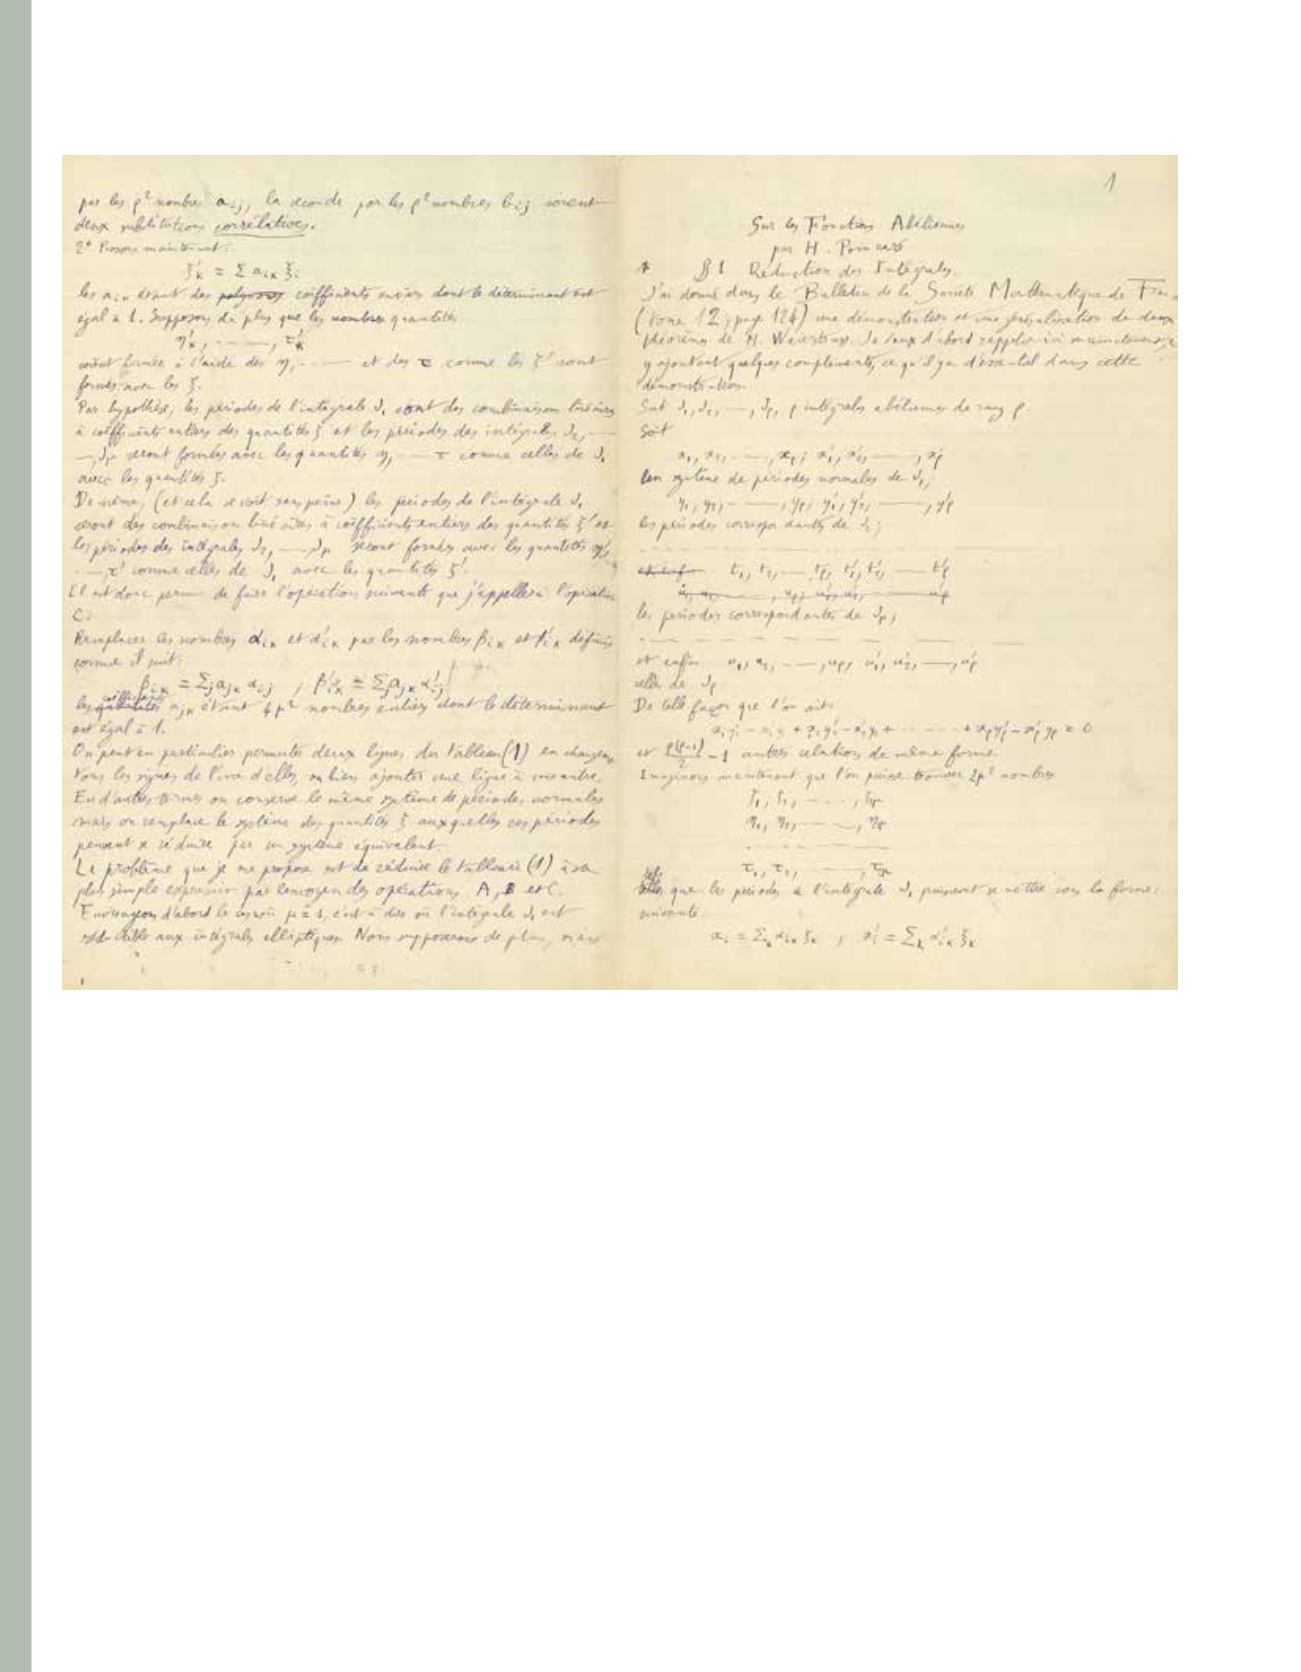 par les ρ² nombres aij, la seconde par les ρ² nombres bij soient
deux substitutions corrélatives.
2° Posons maintenant:
ξ'k = Σ aik ξi
les aik étant des coëfficients entiers dont le déterminant est
égal à 1. Supposons de plus que les nombres quantités
η'k, ——, τ'k
soient formées à l'aide des η, —— et des τ comme les ξ' sont
formés avec les ξ.
Par hypothèse, les périodes de l'intégrale J1 sont des combinaisons linéaires
à coëfficients entiers des quantités ξ et les périodes des intégrales J2, ——
—, Jμ seront formées avec les quantités η, —— τ comme celles de J1
avec les quantités ξ.
De même, (et cela se voit sans peine) les périodes de l'intégrale J1
seront des combinaisons linéaires à coëfficients entiers des quantités ξ' et
les périodes des intégrales J2, ——, Jμ seront formées avec les quantités η',
——, τ' comme celles de J1 avec les quantités ξ'.
Il est donc permis de faire l'opération suivante que j'appellerai l'opération
C:
Remplacer les nombres αik et α'ik par les nombres βik et β'ik définis
comme il suit:
βik = Σj ajk αij ; β'ik = Σj ajk α'ij
les coëfficients ajk étant 4μ² nombres entiers dont le déterminant
est égal à 1.
On peut en particulier permuter deux lignes du tableau (1) en changeant
tous les signes de l'une d'elles, ou bien ajouter une ligne à une autre.
En d'autres termes on conserve le même système de périodes normales
mais on remplace le système des quantités ξ auxquelles ces périodes
peuvent se réduire par un système équivalent.
Le problème que je me propose est de réduire le tableau (1) à sa
plus simple expression par le moyen des opérations A, B et C.
Envisageons d'abord le cas où μ = 1, c'est à dire où l'intégrale J1 est
réductible aux intégrales elliptiques. Nous supposerons de plus,
1
Sur les Fonctions Abéliennes
par H. Poincaré
§ 1 Réduction des Intégrales.
J'ai donné dans le Bulletin de la Société Mathématique de
(tome 12, page 124) une démonstration et une généralisation de deux
théorèmes de M. Weierstrass. Je veux d'abord rappeler ici
y ajoutant quelques compléments, ce qu'il y a d'essentiel dans cette
démonstration.
Soit J1, J2, ——, Jρ, ρ intégrales abéliennes de rang ρ.
Soit
x1, x2, ——, xρ; x'1, x'2, ——, x'ρ
un système de périodes normales de J1;
y1, y2, ——, yρ; y'1, y'2, ——, y'ρ
les périodes correspondantes de J2;
t1, t2, —— tρ, t'1, t'2, —— t'ρ
les périodes correspondantes de Jμ;
et enfin u1, u2, ——, uρ, u'1, u'2, ——, u'ρ
celles de Jρ
De telle façon que l'on ait:
x1y'1 - x'1y1 + x2y'2 - x'2y2 + ······ + xρy'ρ - x'ρyρ = 0
et ρ(ρ-1)/2 - 1 autres relations de même forme.
Imaginons maintenant que l'on puisse trouver 2μ² nombres
ξ1, ξ2, ——, ξ2μ
η1, η2, ——, η2μ
τ1, τ2, ——, τ2μ
tels que les périodes de l'intégrale J1 puissent se mettre sous la forme
suivante:
xi = Σk αik ξk ; x'i = Σk α'ik ξk